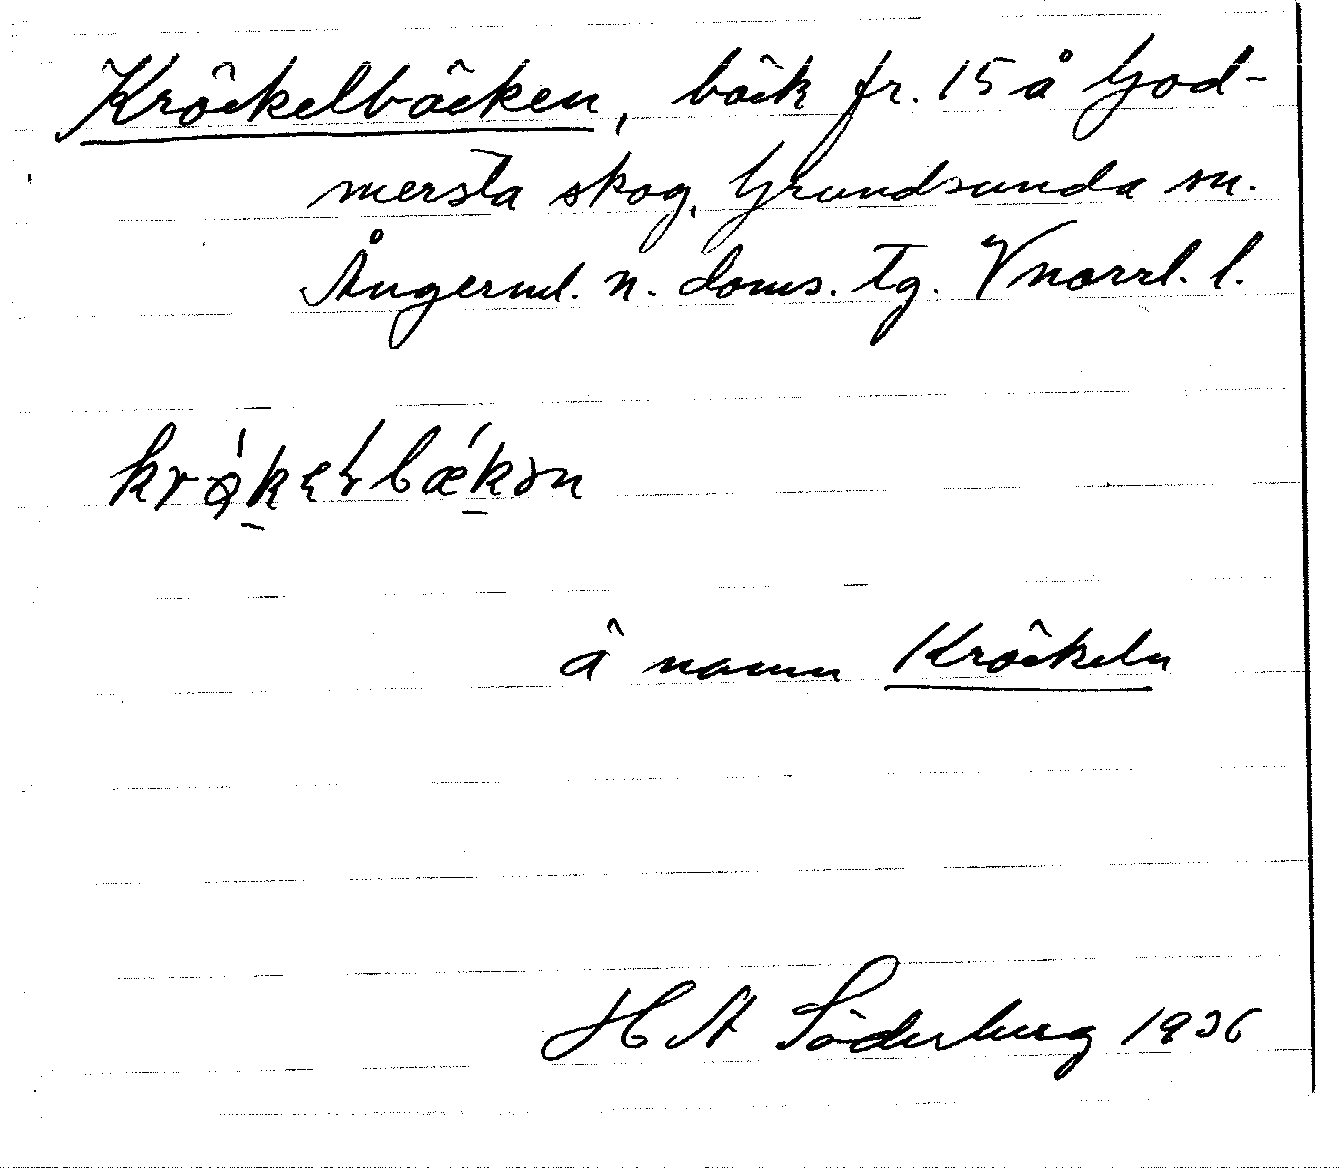 Kröckelbäcken, bäck fr. 15 å God-
mersta skog, Grundsunda sn.
Ångerml. n. doms. tg. Vnorrl. l.
å namn Kröckeln
H A Söderberg 1936